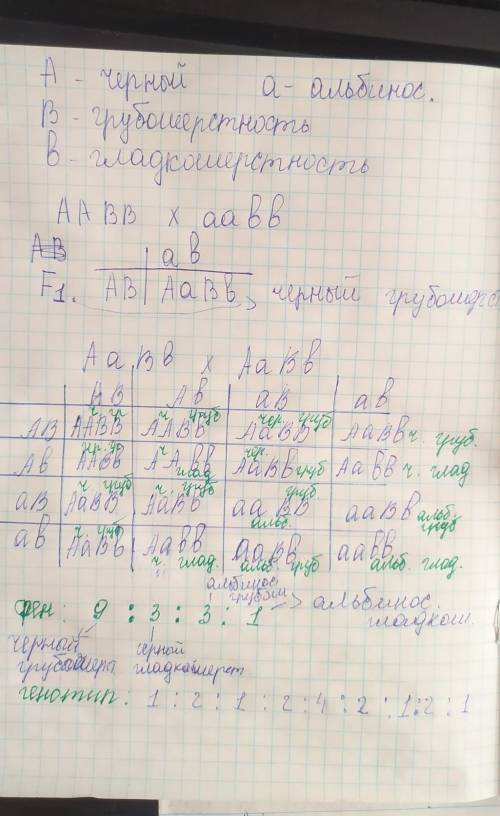 А - черный а - альбинос.
В - грубошерстность
в - гладкошерстность
ААВВ х аавв
АВ ав
F1. АВ АаВв черный
АаВв х АаВв
АВ Ав аВ ав
ч. гр. ч. груб чер. груб
АВ ААВВ ААВв АаВВ АаВв ч. груб.
чр. гр. ч. глад чер. груб
Ав ААВв ААвв АаВв Аавв ч. глад
ч. груб ч. груб груб
аВ АаВВ АаВв ааВВ альб. ааВв альб. груб
ч. груб
ав АаВв Аавв ааВв аавв
ч. глад. альб. груб альб. глад.
альбинос грубош
фен: 9 : 3 : 3 : 1 альбинос. гладкош.
черный черный
грубошерст гладкошерст
генотип: 1 : 2 : 1 : 2 : 4 : 2 : 1 : 2 : 1